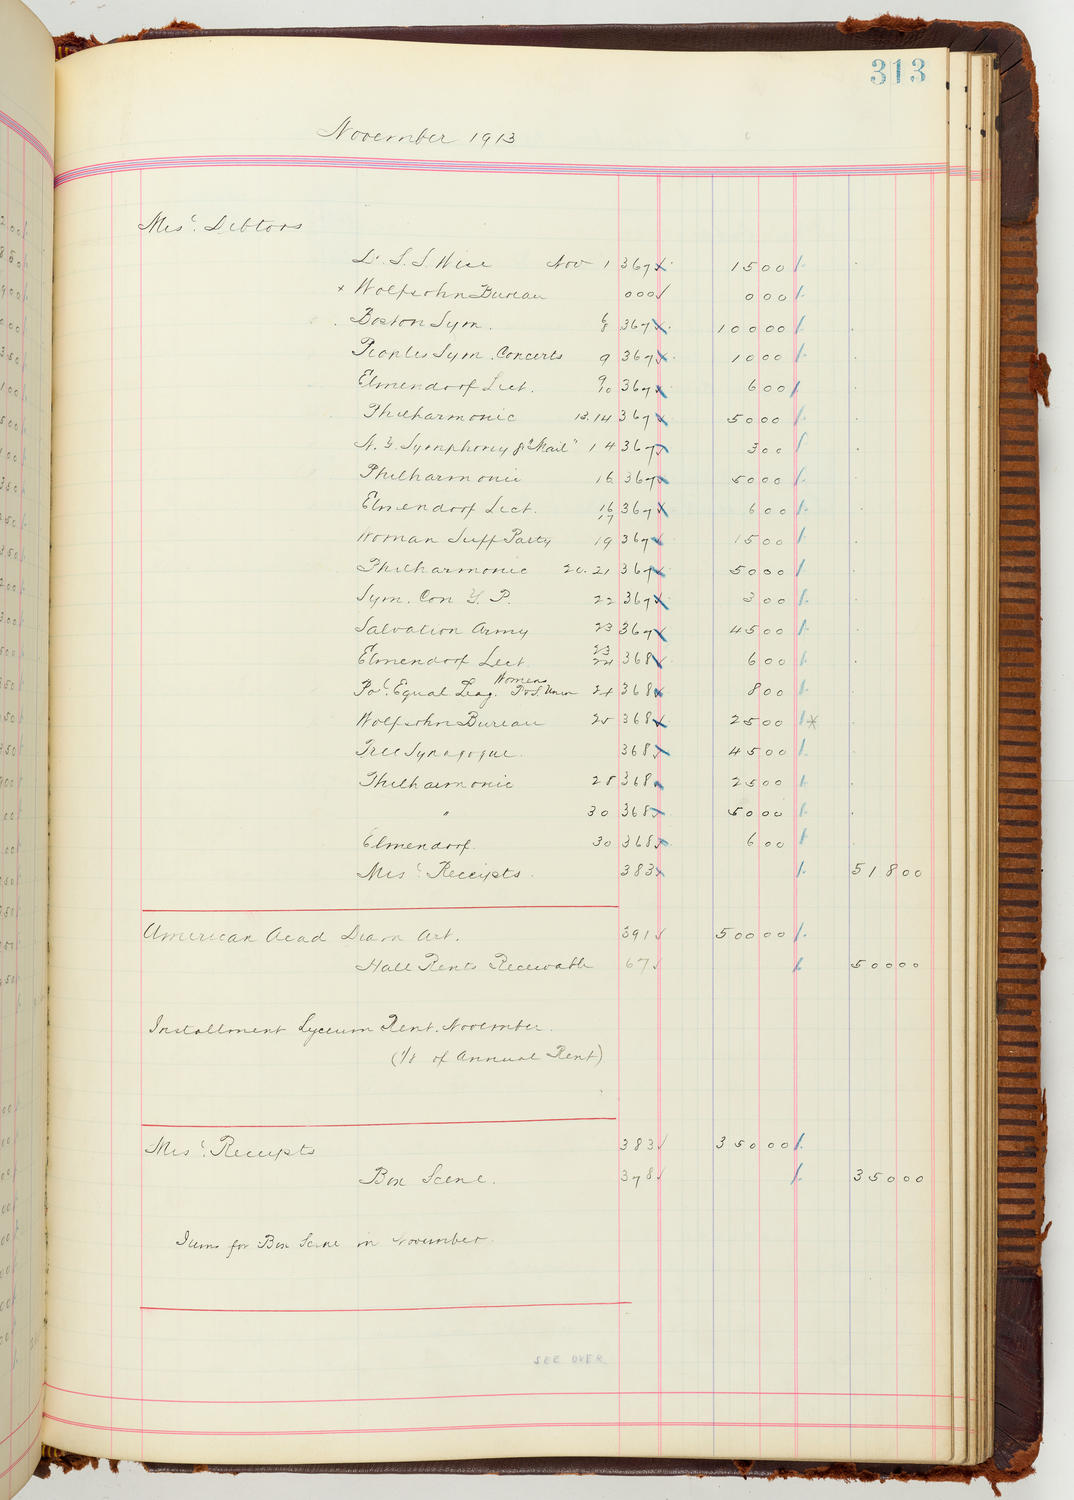 313
November 1913
Misc. Debtors
Dr. S. S. Wise Nov 1 367 1500
x Wolfsohn Bureau 000 000
Boston Sym. 6/8 367 10000
Peoples Sym. Concerts 9 367 1000
Elmendorf Lect. 9/10 367 600
Philharmonic 13.14 367 5000
N. Y. Symphony "Mail" 14 367 300
Philharmonic 16 367 5000
Elmendorf Lect. 16/17 367 600
Woman Suff Party 19 367 1500
Philharmonic 20.21 367 5000
Sym. Con Y. P. 22 367 300
Salvation Army 23 367 4500
Elmendorf Lect. 23/24 368 600
Equal Leag. Womens 24 368 800
Wolfsohn Bureau 25 368 2500
Free Synagogue. 368 4500
Philharmonic 28 368 2500
" 30 368 5000
Elmendorf. 30 368 600
Misc. Receipts. 383 51800
American Acad Dram Art. 391 50000
Hall Rents Receivable 67 50000
Installment Lyceum Rent. November.
(1/8 of Annual Rent)
Misc. Receipts 383 35000
Box Scene. 378 35000
Items for Box Scene in November.
SEE OVER